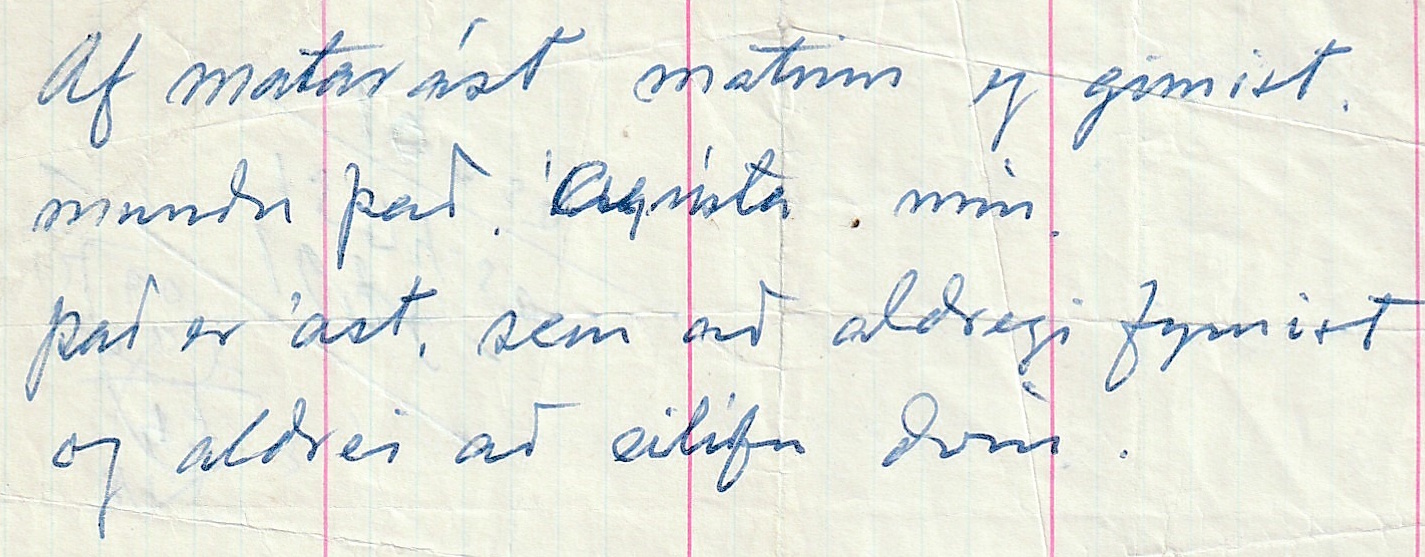 Af matarást matinn eg girnist.
mundu það, Ágústa mín.
það er ást, sem að aldregi fyrnist
og aldrei að eilífu dvín.